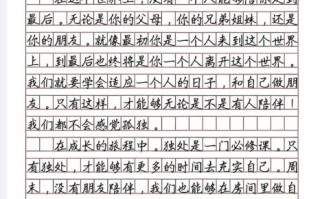 最后。无论是你的父母，你的兄弟姐妹，还是
你的朋友。就像最初你是一个人来到这个世界
上，到最后也终将是你一个人离开这个世界。
我们就要学会适应一个人的日子，和自己做朋
友。只有这样，才能够无论是不是有人陪伴！
我们都不会感觉孤独。
在成长的旅程中。独处是一门必修课。只
有独处，才能够有更多的时间去充实自己。周
末，没有朋友陪伴，我们也能够在房间里做自